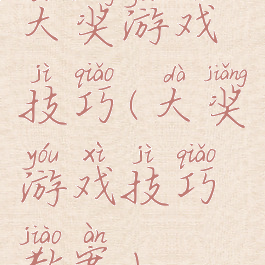 大奖游戏
jì qiǎo dà jiǎng
技巧(大奖
yóu xì jì qiǎo
游戏技巧
jiào àn
教案)